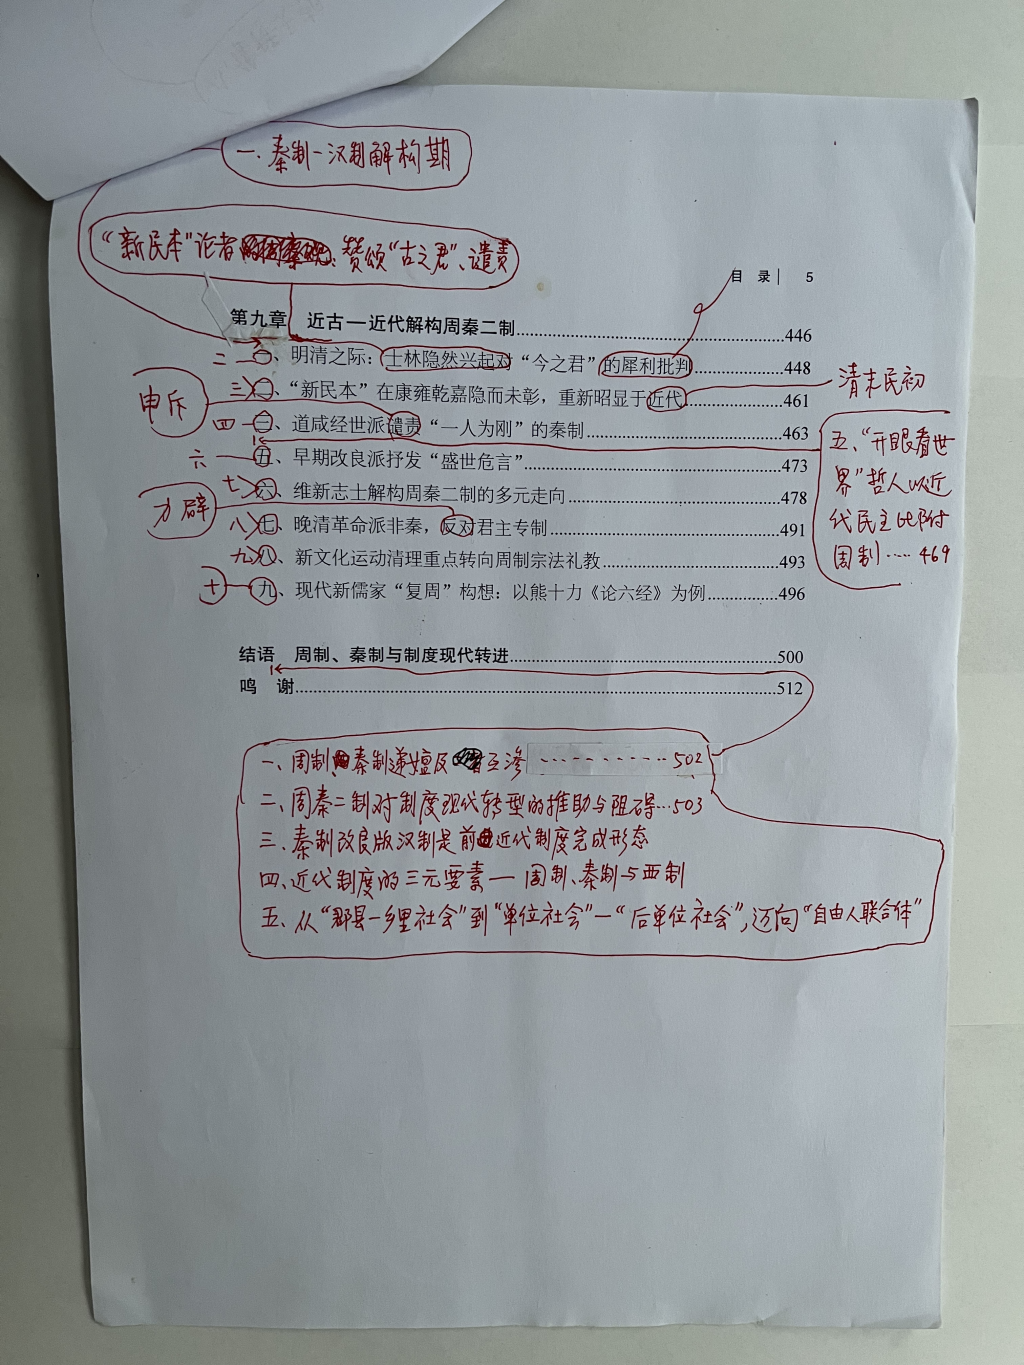 一.秦制—汉制解构期
“新民本”论者:赞颂“古之君”、谴责
目 录 5
第九章 近古—近代解构周秦二制……446
二 一、明清之际：士林隐然兴起对“今之君”的犀利批判……448
三 二、“新民本”在康雍乾嘉隐而未彰，重新昭显于近代……461
清末民初
申斥
四 三、道咸经世派谴责“一人为刚”的秦制……463
五、“开眼看世
界”哲人以近
代民主比附
周制……469
六 五、早期改良派抒发“盛世危言”……473
七 六、维新志士解构周秦二制的多元走向……478
力辟
八 七、晚清革命派非秦，反对君主专制……491
九 八、新文化运动清理重点转向周制宗法礼教……493
十 九、现代新儒家“复周”构想：以熊十力《论六经》为例……496
结语 周制、秦制与制度现代转进……500
鸣 谢……512
一、周制、秦制递嬗及互渗……502
二、周秦二制对制度现代转型的推助与阻碍…503
三、秦制改良版汉制是前近代制度完成形态
四、近代制度的三元要素—周制、秦制与西制
五、从“郡县—乡里社会”到“单位社会”—“后单位社会”,迈向“自由人联合体”